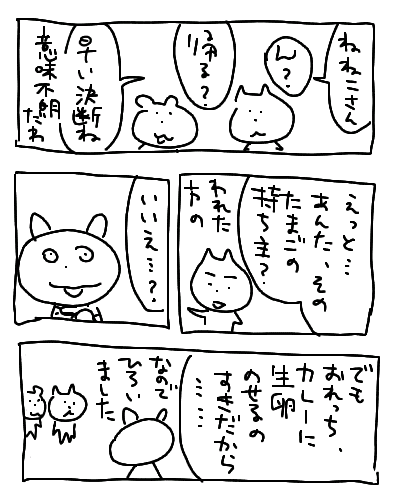 ねねこさん
ん?
帰る?
早い決断ね
意味不明
だわ
えっと…
あんた、その
たまごの
持ち主?
われた
方の
いいえ…?
でも
おれっち、
カレーに
生卵
のせるの
すきだから
……
なので
ひろい
ました